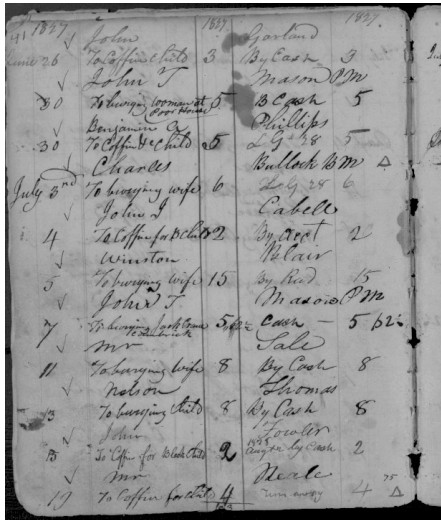 41 1827 1827 1827
John Garland
June 26 To Coffin Child 3 By Cash 3
John T Mason PM
30 To burying woman at Poor House 5 B Cash 5
Benjamin Phillips
30 To Coffin &c Child 5 LG 28 5
Charles Bullock BM
July 3rd To burying wife 6 LG 28 6
John J Cabell
4 To Coffin for B Child 2 By Acct 2
Winston Blair
5 To burying wife 15 By Recd 15
John T Mason PM
7 To burying 5 62½ Cash – 5 62½
Mr Sale
11 To burying wife 8 By Cash 8
Nelson Thomas
13 To burying Child 8 By Cash 8
John Fowler
15 To Coffin for Black Child 2 by Cash 2
Mr Neale
19 To Coffin for Child 4 4 75